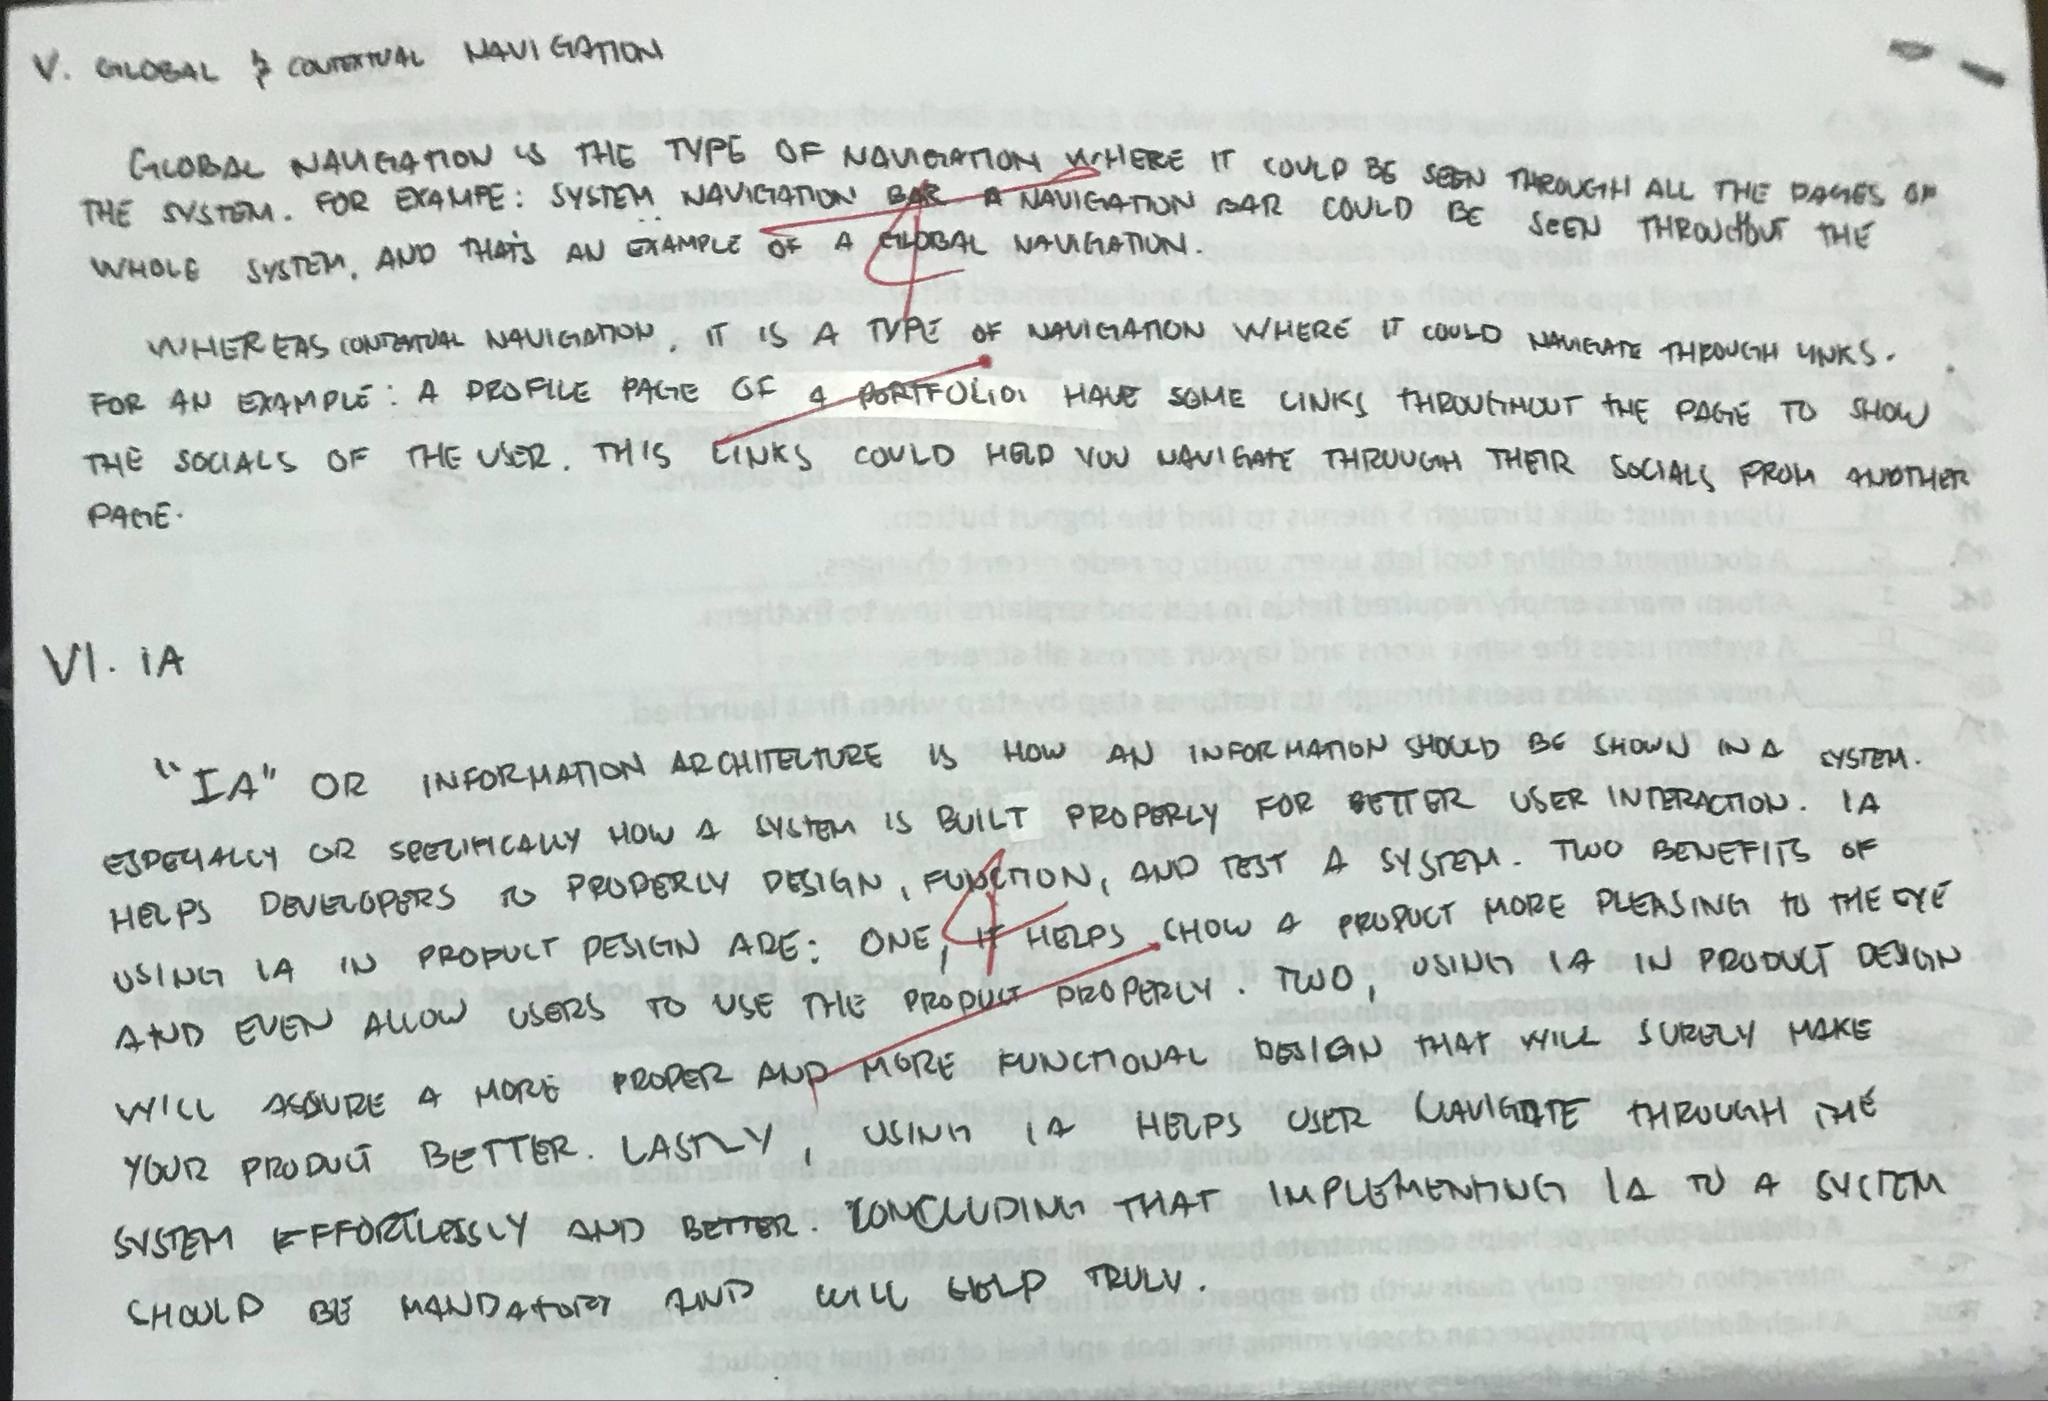 V. GLOBAL & CONTEXTUAL NAVIGATION
GLOBAL NAVIGATION IS THE TYPE OF NAVIGATION WHERE IT COULD BE SEEN THROUGH ALL THE PAGES OF
THE SYSTEM. FOR EXAMPE: SYSTEM NAVIGATION BAR A NAVIGATION BAR COULD BE SEEN THROUGHOUT THE
WHOLE SYSTEM, AND THAT'S AN EXAMPLE OF A GLOBAL NAVIGATION.
WHEREAS CONTEXTUAL NAVIGATION, IT IS A TYPE OF NAVIGATION WHERE IT COULD NAVIGATE THROUGH LINKS.
FOR AN EXAMPLE: A PROFILE PAGE OF A PORTFOLIO, HAVE SOME LINKS THROUGHOUT THE PAGE TO SHOW
THE SOCIALS OF THE USER. THIS LINKS COULD HELP YOU NAVIGATE THROUGH THEIR SOCIALS FROM ANOTHER
PAGE.
VI. IA
"IA" OR INFORMATION ARCHITECTURE IS HOW AN INFORMATION SHOULD BE SHOWN IN A SYSTEM.
ESPECIALLY OR SPECIFICALLY HOW A SYSTEM IS BUILT PROPERLY FOR BETTER USER INTERACTION. IA
HELPS DEVELOPERS TO PROPERLY DESIGN, FUNCTION, AND TEST A SYSTEM. TWO BENEFITS OF
USING IA IN PRODUCT DESIGN ARE: ONE, IT HELPS SHOW A PRODUCT MORE PLEASING TO THE EYE
AND EVEN ALLOW USERS TO USE THE PRODUCT PROPERLY. TWO, USING IA IN PRODUCT DESIGN
WILL ASSURE A MORE PROPER AND MORE FUNCTIONAL DESIGN THAT WILL SURELY MAKE
YOUR PRODUCT BETTER. LASTLY, USING IA HELPS USER NAVIGATE THROUGH THE
SYSTEM EFFORTLESSLY AND BETTER. CONCLUDING THAT IMPLEMENTING IA TO A SYSTEM
SHOULD BE MANDATORY AND WILL HELP TRULY.